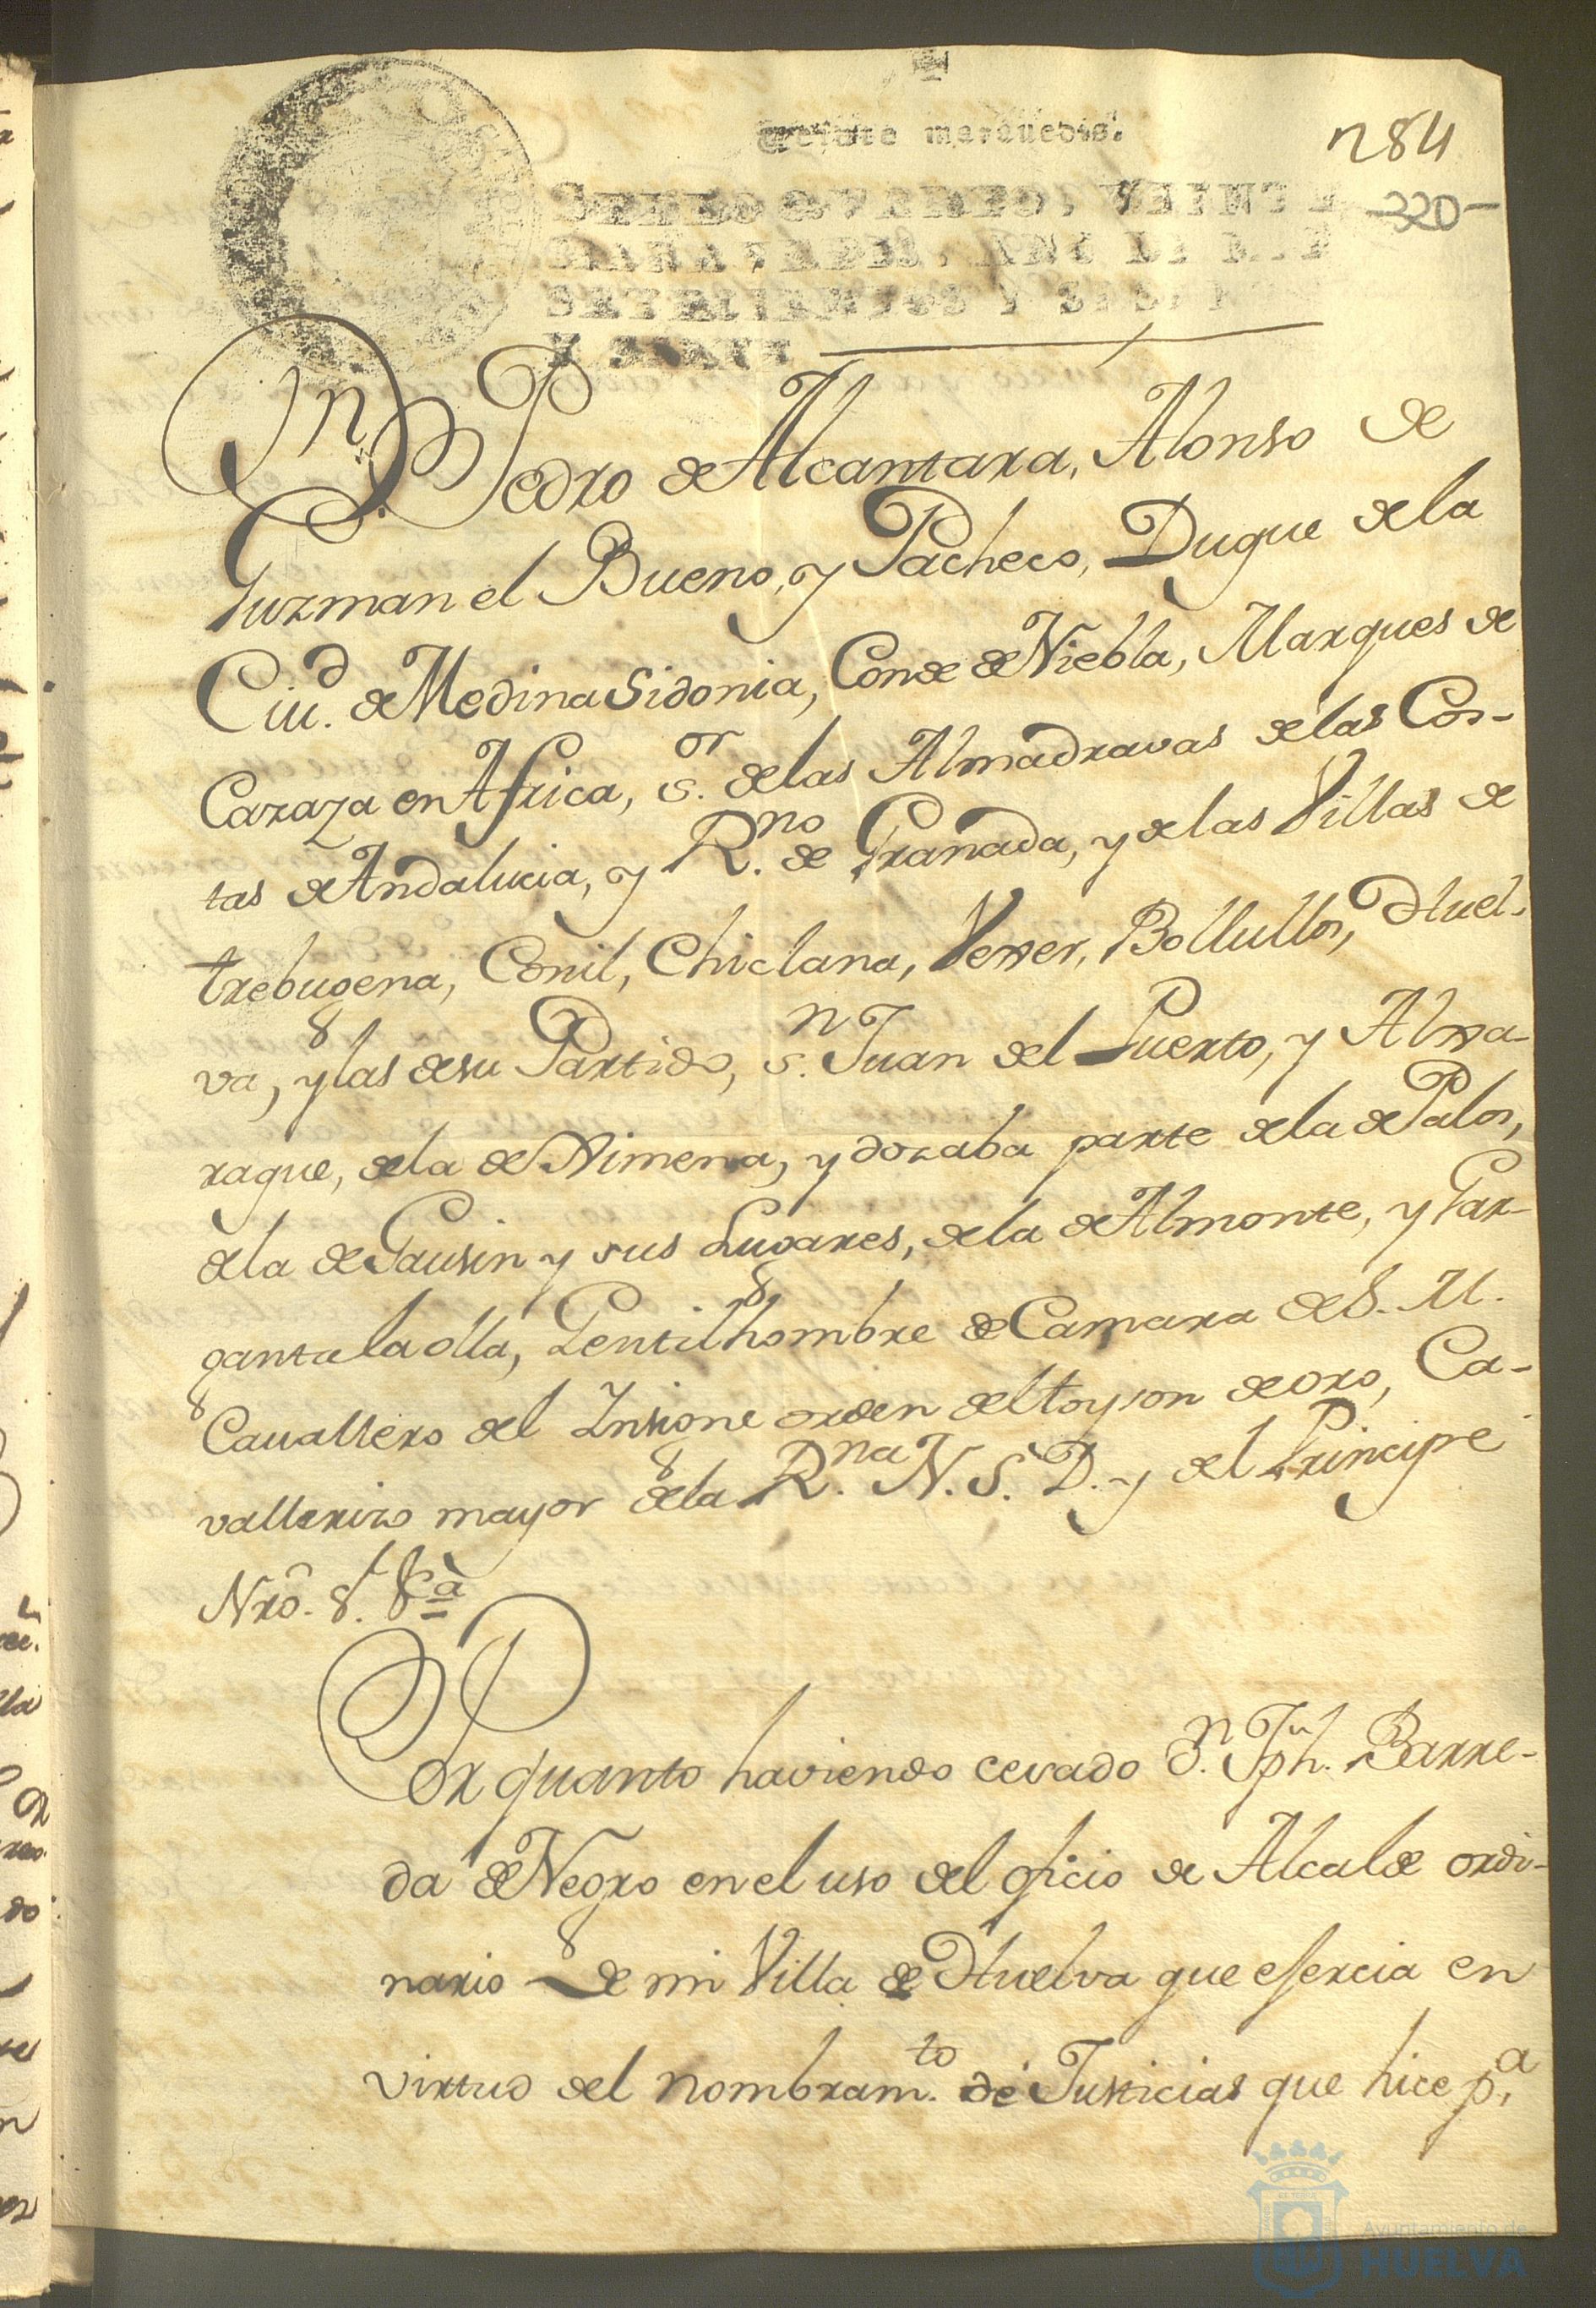 Veinte marauedis.
n 84
320
SELLO QVARTO, VEINTE
MARAVEDIS, AÑO DE MIL
SETECIENTOS Y SESENTA
Y SIETE
Dn. Pedro de Alcantara, Alonso de
Guzman el Bueno, y Pacheco, Duque de la
Ciud. de Medina Sidonia, Conde de Niebla, Marques de
Cazaza en Africa, Sor. de las Almadravas de las Cos-
tas de Andalucia, y Rno. de Granada, y de las Villas de
trebugena, Conil, Chiclana, Vexer, Bollullos, Huel-
va, y las de su Partido, Sn. Juan del Puerto, y Alxa-
raque, de la de Ximena, y dozaba parte de la de Palos,
de la de Gausin y sus Lugares, de la de Almonte, y Gar-
ganta la olla, Gentilhombre de Camara de S. M.
Cauallero del Insigne orden del toyson de oro, Ca-
vallerizo mayor de la Rna. N. S. D. y del Principe
Nrô. Sr. &ca
Por quanto haviendo cesado Dn. Jph. Barre-
da de Negro en el uso del oficio de Alcalde ordi-
nario de mi Villa de Huelva que esercia en
virtud del nombramto. de Justicias que hice pa.
Ayuntamiento de
HUELVA